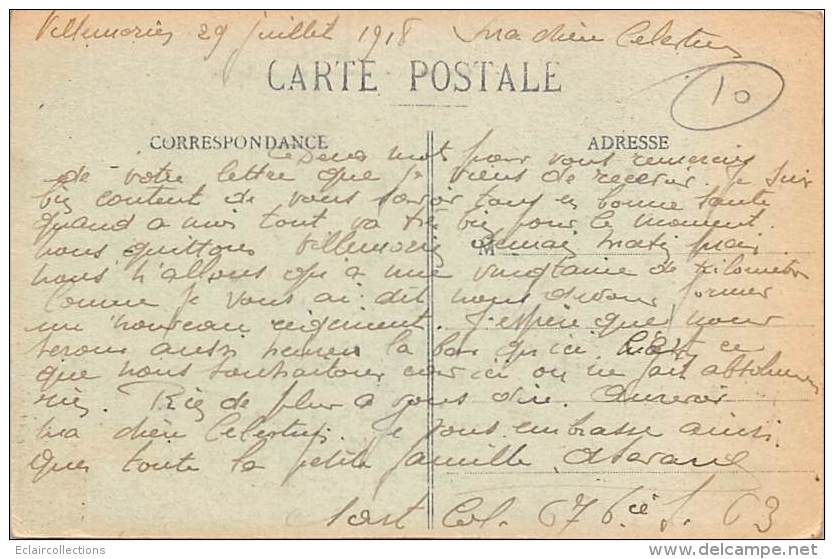 Villemorien 29 juillet 1918 Ma chère Celestine
CARTE POSTALE
10
CORRESPONDANCE
ADRESSE
Ce Deux mot pour vous remercier
de votre lettre que je viens de recevoir. Je suis
bien content de vous savoir tous en bonne santé
quand a moi tout va très bien pour le moment.
nous quittons Villemorien demain matin mais
M
nous n'allons qu'a une vingtaine de kilometre
Comme je vous ai dit nous devons former
un nouveau regiment. J'espère que nous
serons aussi heureux la bas qu'ici. C'est ce
que nous souhaitons car ici on ne fait absolument
rien. Rien de plus a vous dire. Aurevoir
ma chère Celestine. Je vous embrasse ainsi
que toute la petite famille
676 S. 63
Eclaircollections
delcampe.net